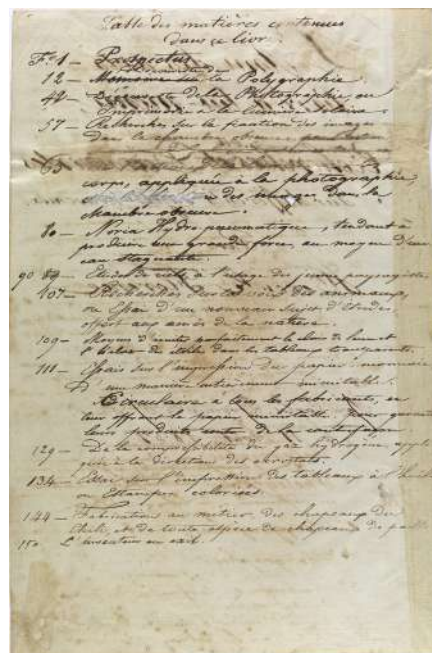 Table des matières contenues
dans ce livre.
F.º 1 — Prospectus
12 — Polygraphie.
42 — Découverte de la Photographie ou
Imprimerie à la lumière solaire.
57 — Recherches sur la fixation des images
dans la chambre obscure par
corps, appliquée à la photographie,
des images dans la
chambre obscure.
80 — Noria Hydro-pneumatique, tendant à
produire une grande force, au moyen d'une
eau stagnante.
90 — Etudes de ciels à l'usage des jeunes paysagistes
107 — Recherches sur la voix des animaux,
ou Essai d'un nouveau sujet d'études
offert aux amis de la nature.
109 — Moyens d'imiter parfaitement le clair de lune et
l'éclat des étoiles dans les tableaux transparents.
111 — Essais sur l'impression du papier-monnaie
d'une manière inimitable.
à tous les fabricants, en
leur offrant le papier inimitable pour
leurs produits contre la contrefaçon
129 — De la compressibilité du gaz hydrogène,
à la direction des aérostats.
134 — Essai sur l'impression des tableaux à l'huile
ou Estampes colorisés.
144 — Fabrication au métier des chapeaux du
Chili, et de toute espèce de chapeaux de paille
150 L'inventeur en exil.